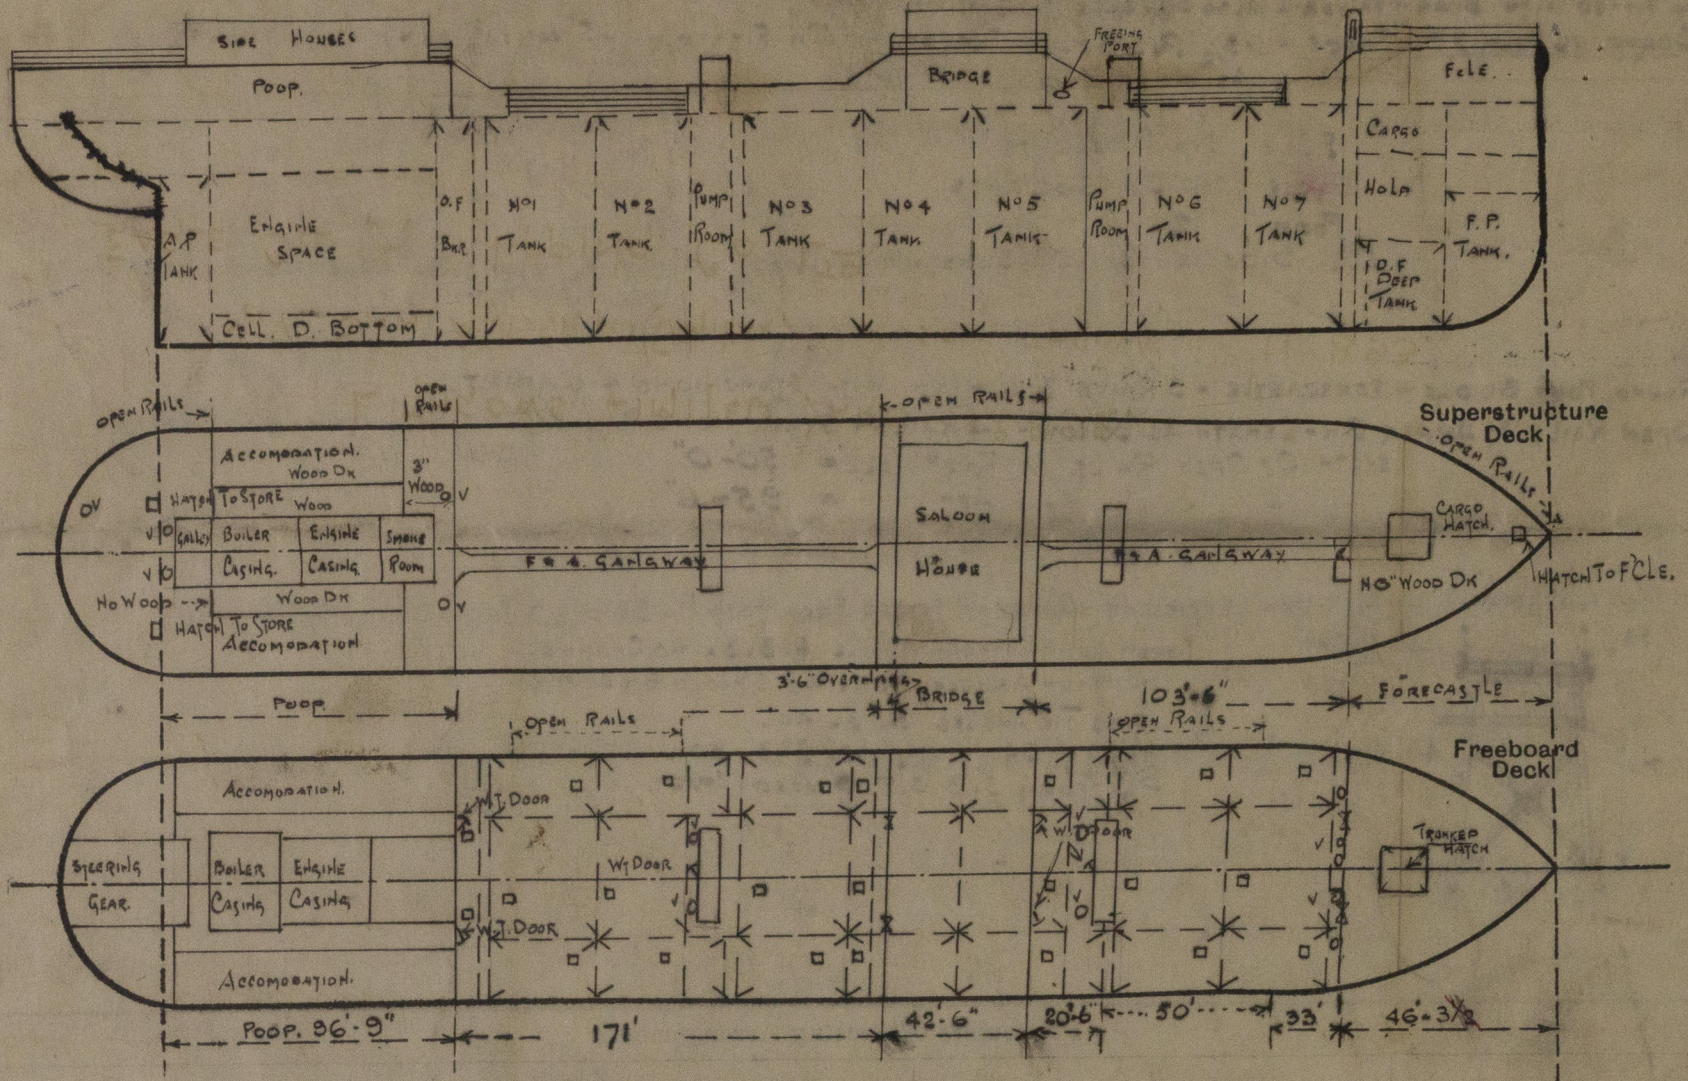 SIDE HOUSES
POOP.
BRIDGE
FREEING
PORT
FCLE.
CARGO
HOLD
A.P
TANK
ENGINE
SPACE
CELL. D. BOTTOM
O.F
BKR
No1
TANK
No2
TANK.
PUMP
ROOM
No3
TANK
No4
TANK
No5
TANK
PUMP
ROOM
No6
TANK
No7
TANK
F.P.
TANK.
O.F
DEEP
TANK
Superstructure
Deck
OPEN RAILS
OPEN
RAILS
OPEN RAILS
OPEN RAILS
ACCOMODATION.
WOOD DK
3"
WOOD
V
OV
HATCH TO STORE
WOOD
V
GALLEY
BOILER
CASING.
ENGINE
CASING.
SMOKE
ROOM
V
NO WOOD
WOOD DK
V
HATCH TO STORE
ACCOMODATION
F & A. GANGWAY
SALOON
HOUSE
F & A. GANGWAY
CARGO
HATCH.
NO WOOD DK
HATCH TO F'CLE.
3'-6" OVERHANG
POOP.
BRIDGE
103'-6"
FORECASTLE
OPEN RAILS
OPEN RAILS
Freeboard
Deck
ACCOMODATION.
W.T. DOOR
STEERING
GEAR.
BOILER
CASING
ENGINE
CASING
WT DOOR
W.T. DOOR
W.T. DOOR
TRUNKED
HATCH
ACCOMODATION.
POOP. 96'-9"
171'
42'-6"
20'-6"
50'
33'
46'-3½